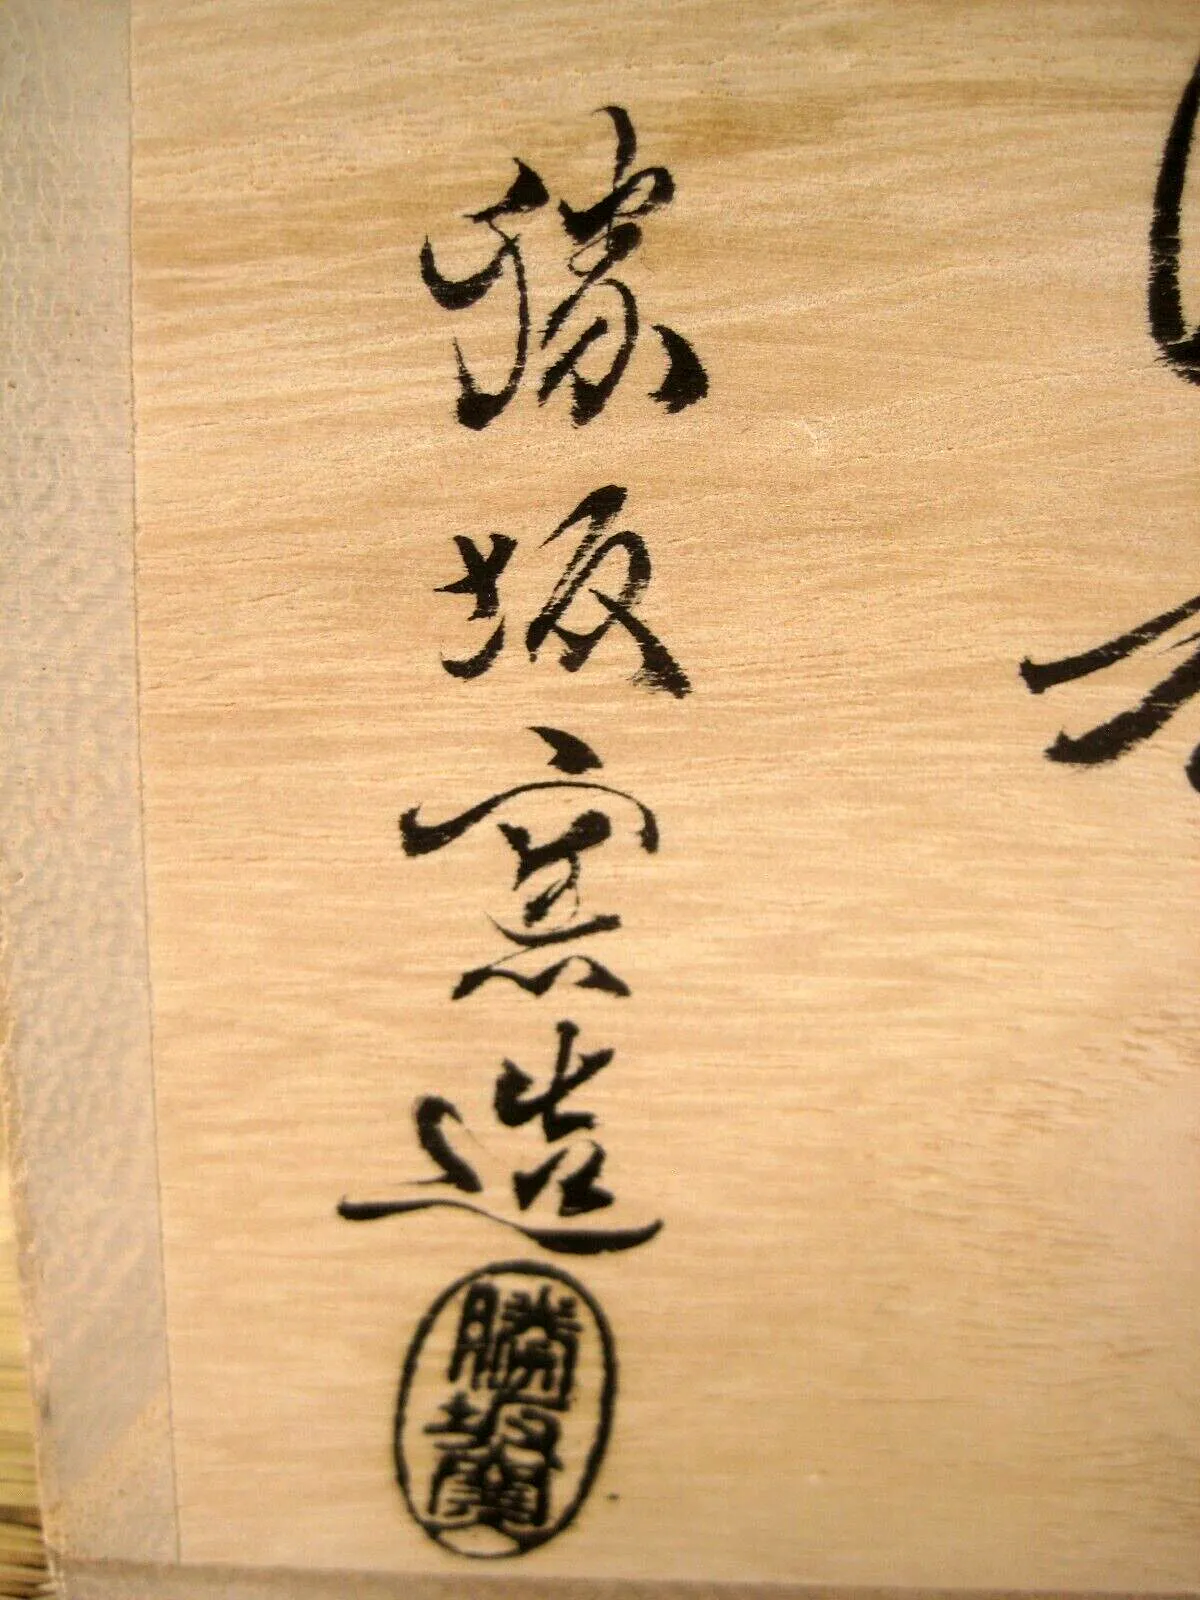 勝坂窯造
勝坂